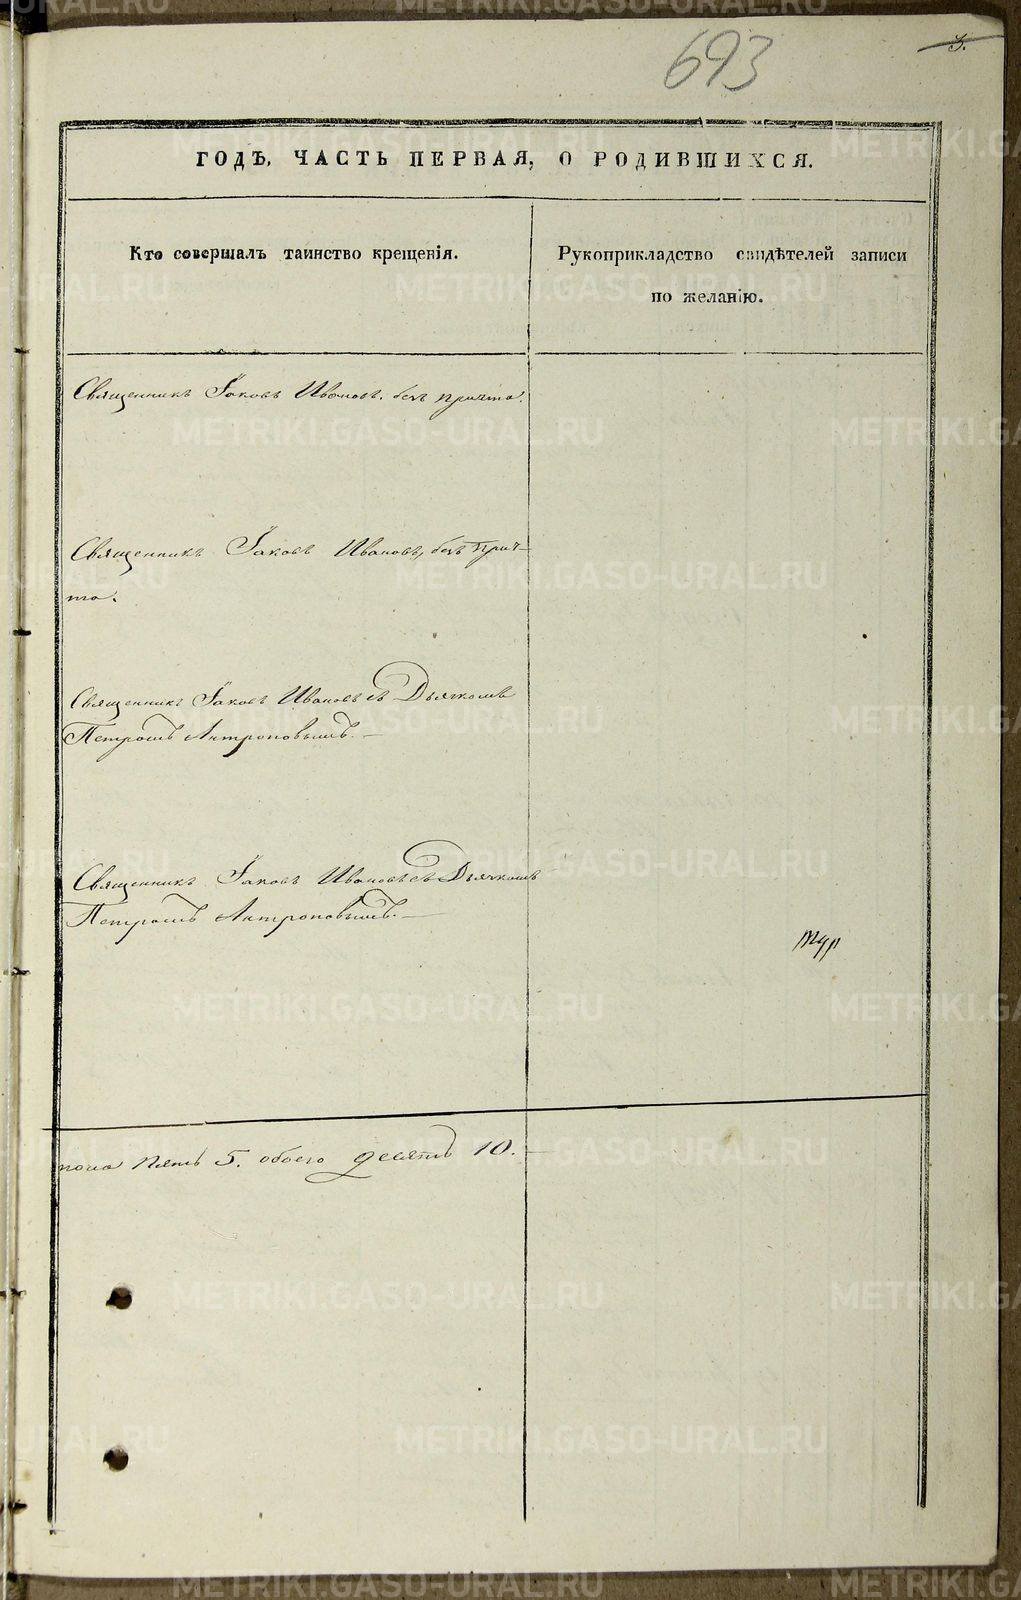 693
5.
ГОДЪ, ЧАСТЬ ПЕРВАЯ, О РОДИВШИХСЯ.
Кто совершалъ таинство крещенія.
Рукоприкладство свидѣтелей записи
по желанію.
Священникъ Іаковъ Ивановъ, безъ причта.
Священникъ Іаковъ Ивановъ, безъ прич-
та.
Священникъ Іаковъ Ивановъ съ Дьячкомъ
Петромъ Антроповымъ. —
Священникъ Іаковъ Ивановъ съ Дьячкомъ
Петромъ Антроповымъ. —
пола пять 5. обоего десять 10. —
METRIKI.GASO-URAL.RU